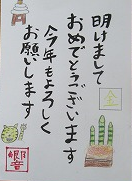 明けまして
おめでとうございます
今年もよろしく
お願いします